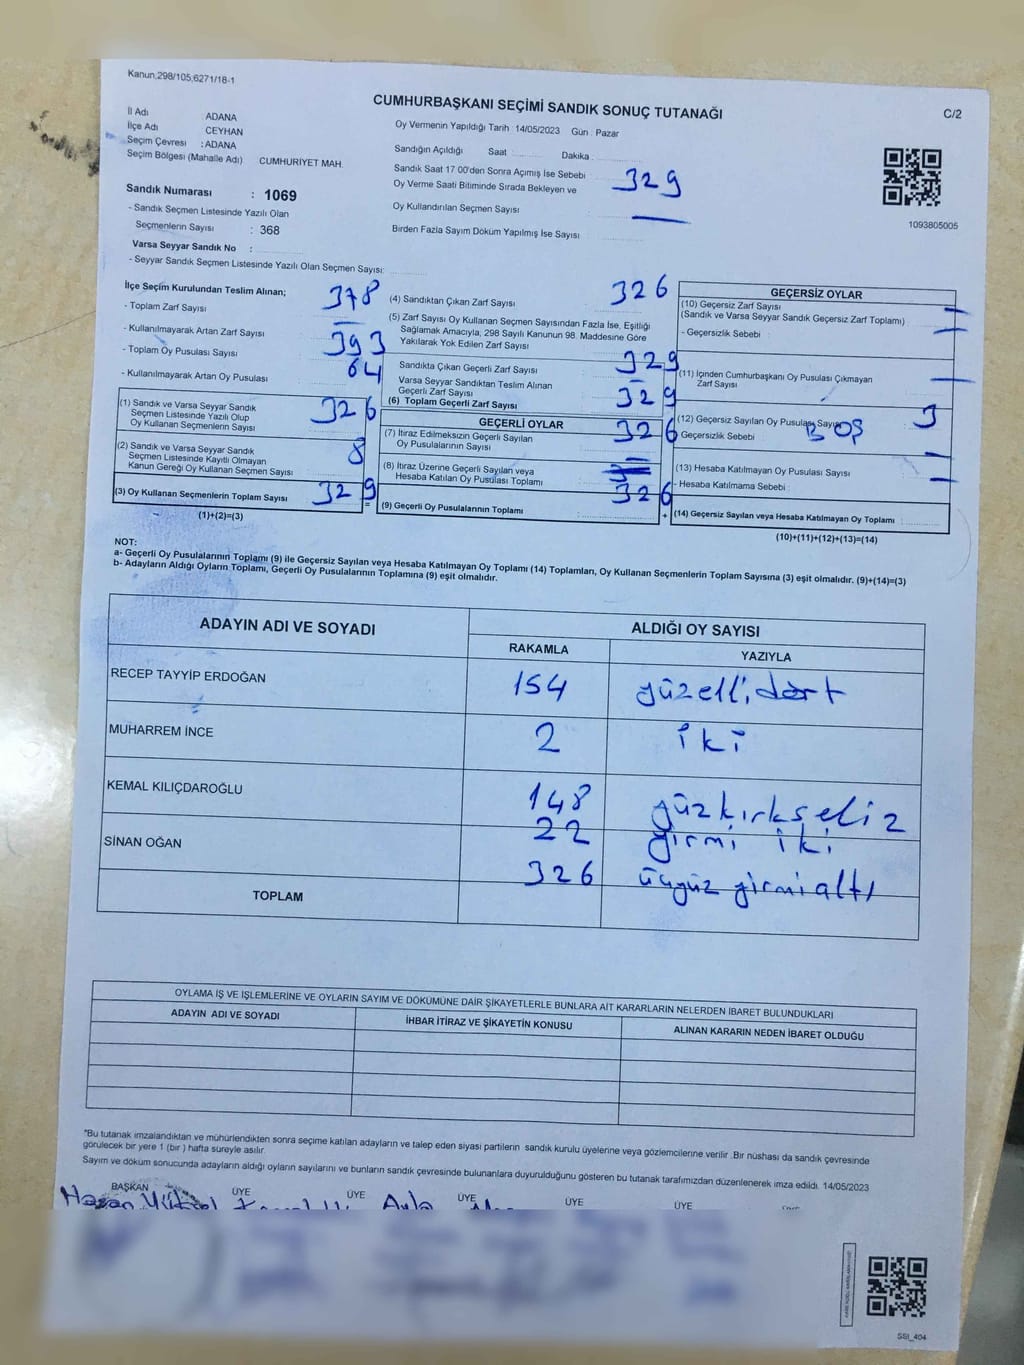 Kanun,298/105,6271/18-1
CUMHURBAŞKANI SEÇİMİ SANDIK SONUÇ TUTANAĞI
C/2
İl Adı ADANA
İlçe Adı CEYHAN
Seçim Çevresi : ADANA
Seçim Bölgesi (Mahalle Adı) CUMHURİYET MAH.
Sandık Numarası : 1069
- Sandık Seçmen Listesinde Yazılı Olan
Seçmenlerin Sayısı : 368
Varsa Seyyar Sandık No :
- Seyyar Sandık Seçmen Listesinde Yazılı Olan Seçmen Sayısı:
Oy Vermenin Yapıldığı Tarih : 14/05/2023 Gün : Pazar
Sandığın Açıldığı Saat Dakika :
Sandık Saat 17.00'den Sonra Açımış İse Sebebi :
Oy Verme Saati Bitiminde Sırada Bekleyen ve 329
Oy Kullandırılan Seçmen Sayısı
Birden Fazla Sayım Döküm Yapılmış İse Sayısı
1093805005
İlçe Seçim Kurulundan Teslim Alınan;
- Toplam Zarf Sayısı 378
- Kullanılmayarak Artan Zarf Sayısı
- Toplam Oy Pusulası Sayısı 393
- Kullanılmayarak Artan Oy Pusulası 64
(1) Sandık ve Varsa Seyyar Sandık
Seçmen Listesinde Yazılı Olup
Oy Kullanan Seçmenlerin Sayısı 326
(2) Sandık ve Varsa Seyyar Sandık
Seçmen Listesinde Kayıtlı Olmayan
Kanun Gereği Oy Kullanan Seçmen Sayısı 8
(3) Oy Kullanan Seçmenlerin Toplam Sayısı 329
(1)+(2)=(3)
(4) Sandıktan Çıkan Zarf Sayısı 326
(5) Zarf Sayısı Oy Kullanan Seçmen Sayısından Fazla İse, Eşitliği
Sağlamak Amacıyla, 298 Sayılı Kanunun 98. Maddesine Göre
Yakılarak Yok Edilen Zarf Sayısı
Sandıkta Çıkan Geçerli Zarf Sayısı 329
Varsa Seyyar Sandıktan Teslim Alınan
Geçerli Zarf Sayısı
(6) Toplam Geçerli Zarf Sayısı 329
GEÇERLİ OYLAR
(7) İtiraz Edilmeksizin Geçerli Sayılan
Oy Pusulalarının Sayısı 326
(8) İtiraz Üzerine Geçerli Sayılan veya
Hesaba Katılan Oy Pusulası Toplamı
(9) Geçerli Oy Pusulalarının Toplamı 326
GEÇERSİZ OYLAR
(10) Geçersiz Zarf Sayısı
(Sandık ve Varsa Seyyar Sandık Geçersiz Zarf Toplamı)
- Geçersizlik Sebebi :
(11) İçinden Cumhurbaşkanı Oy Pusulası Çıkmayan
Zarf Sayısı
(12) Geçersiz Sayılan Oy Pusulası Sayısı 3
Geçersizlik Sebebi BOŞ
(13) Hesaba Katılmayan Oy Pusulası Sayısı
- Hesaba Katılmama Sebebi :
(14) Geçersiz Sayılan veya Hesaba Katılmayan Oy Toplamı :
(10)+(11)+(12)+(13)=(14)
NOT:
a- Geçerli Oy Pusulalarının Toplamı (9) ile Geçersiz Sayılan veya Hesaba Katılmayan Oy Toplamı (14) Toplamları, Oy Kullanan Seçmenlerin Toplam Sayısına (3) eşit olmalıdır. (9)+(14)=(3)
b- Adayların Aldığı Oyların Toplamı, Geçerli Oy Pusulalarının Toplamına (9) eşit olmalıdır.
ADAYIN ADI VE SOYADI ALDIĞI OY SAYISI
RAKAMLA YAZIYLA
RECEP TAYYİP ERDOĞAN 154 yüzelli,dört
MUHARREM İNCE 2 iki
KEMAL KILIÇDAROĞLU 148 yüzkırkseliz
SİNAN OĞAN 22 yirmi iki
TOPLAM 326 üçyüz yirmialtı
OYLAMA İŞ VE İŞLEMLERİNE VE OYLARIN SAYIM VE DÖKÜMÜNE DAİR ŞİKAYETLERLE BUNLARA AİT KARARLARIN NELERDEN İBARET BULUNDUKLARI
ADAYIN ADI VE SOYADI İHBAR İTİRAZ VE ŞİKAYETİN KONUSU ALINAN KARARIN NEDEN İBARET OLDUĞU
"Bu tutanak imzalandıktan ve mühürlendikten sonra seçime katılan adayların ve talep eden siyasi partilerin sandık kurulu üyelerine veya gözlemcilerine verilir .Bir nüshası da sandık çevresinde
görülecek bir yere 1 (bir ) hafta süreyle asılır.
Sayım ve döküm sonucunda adayların aldığı oyların sayılarını ve bunların sandık çevresinde bulunanlara duyurulduğunu gösteren bu tutanak tarafımızdan düzenlenerek imza edildi. 14/05/2023
BAŞKAN ÜYE ÜYE ÜYE ÜYE ÜYE
Hasan Yüksel
SSI_404